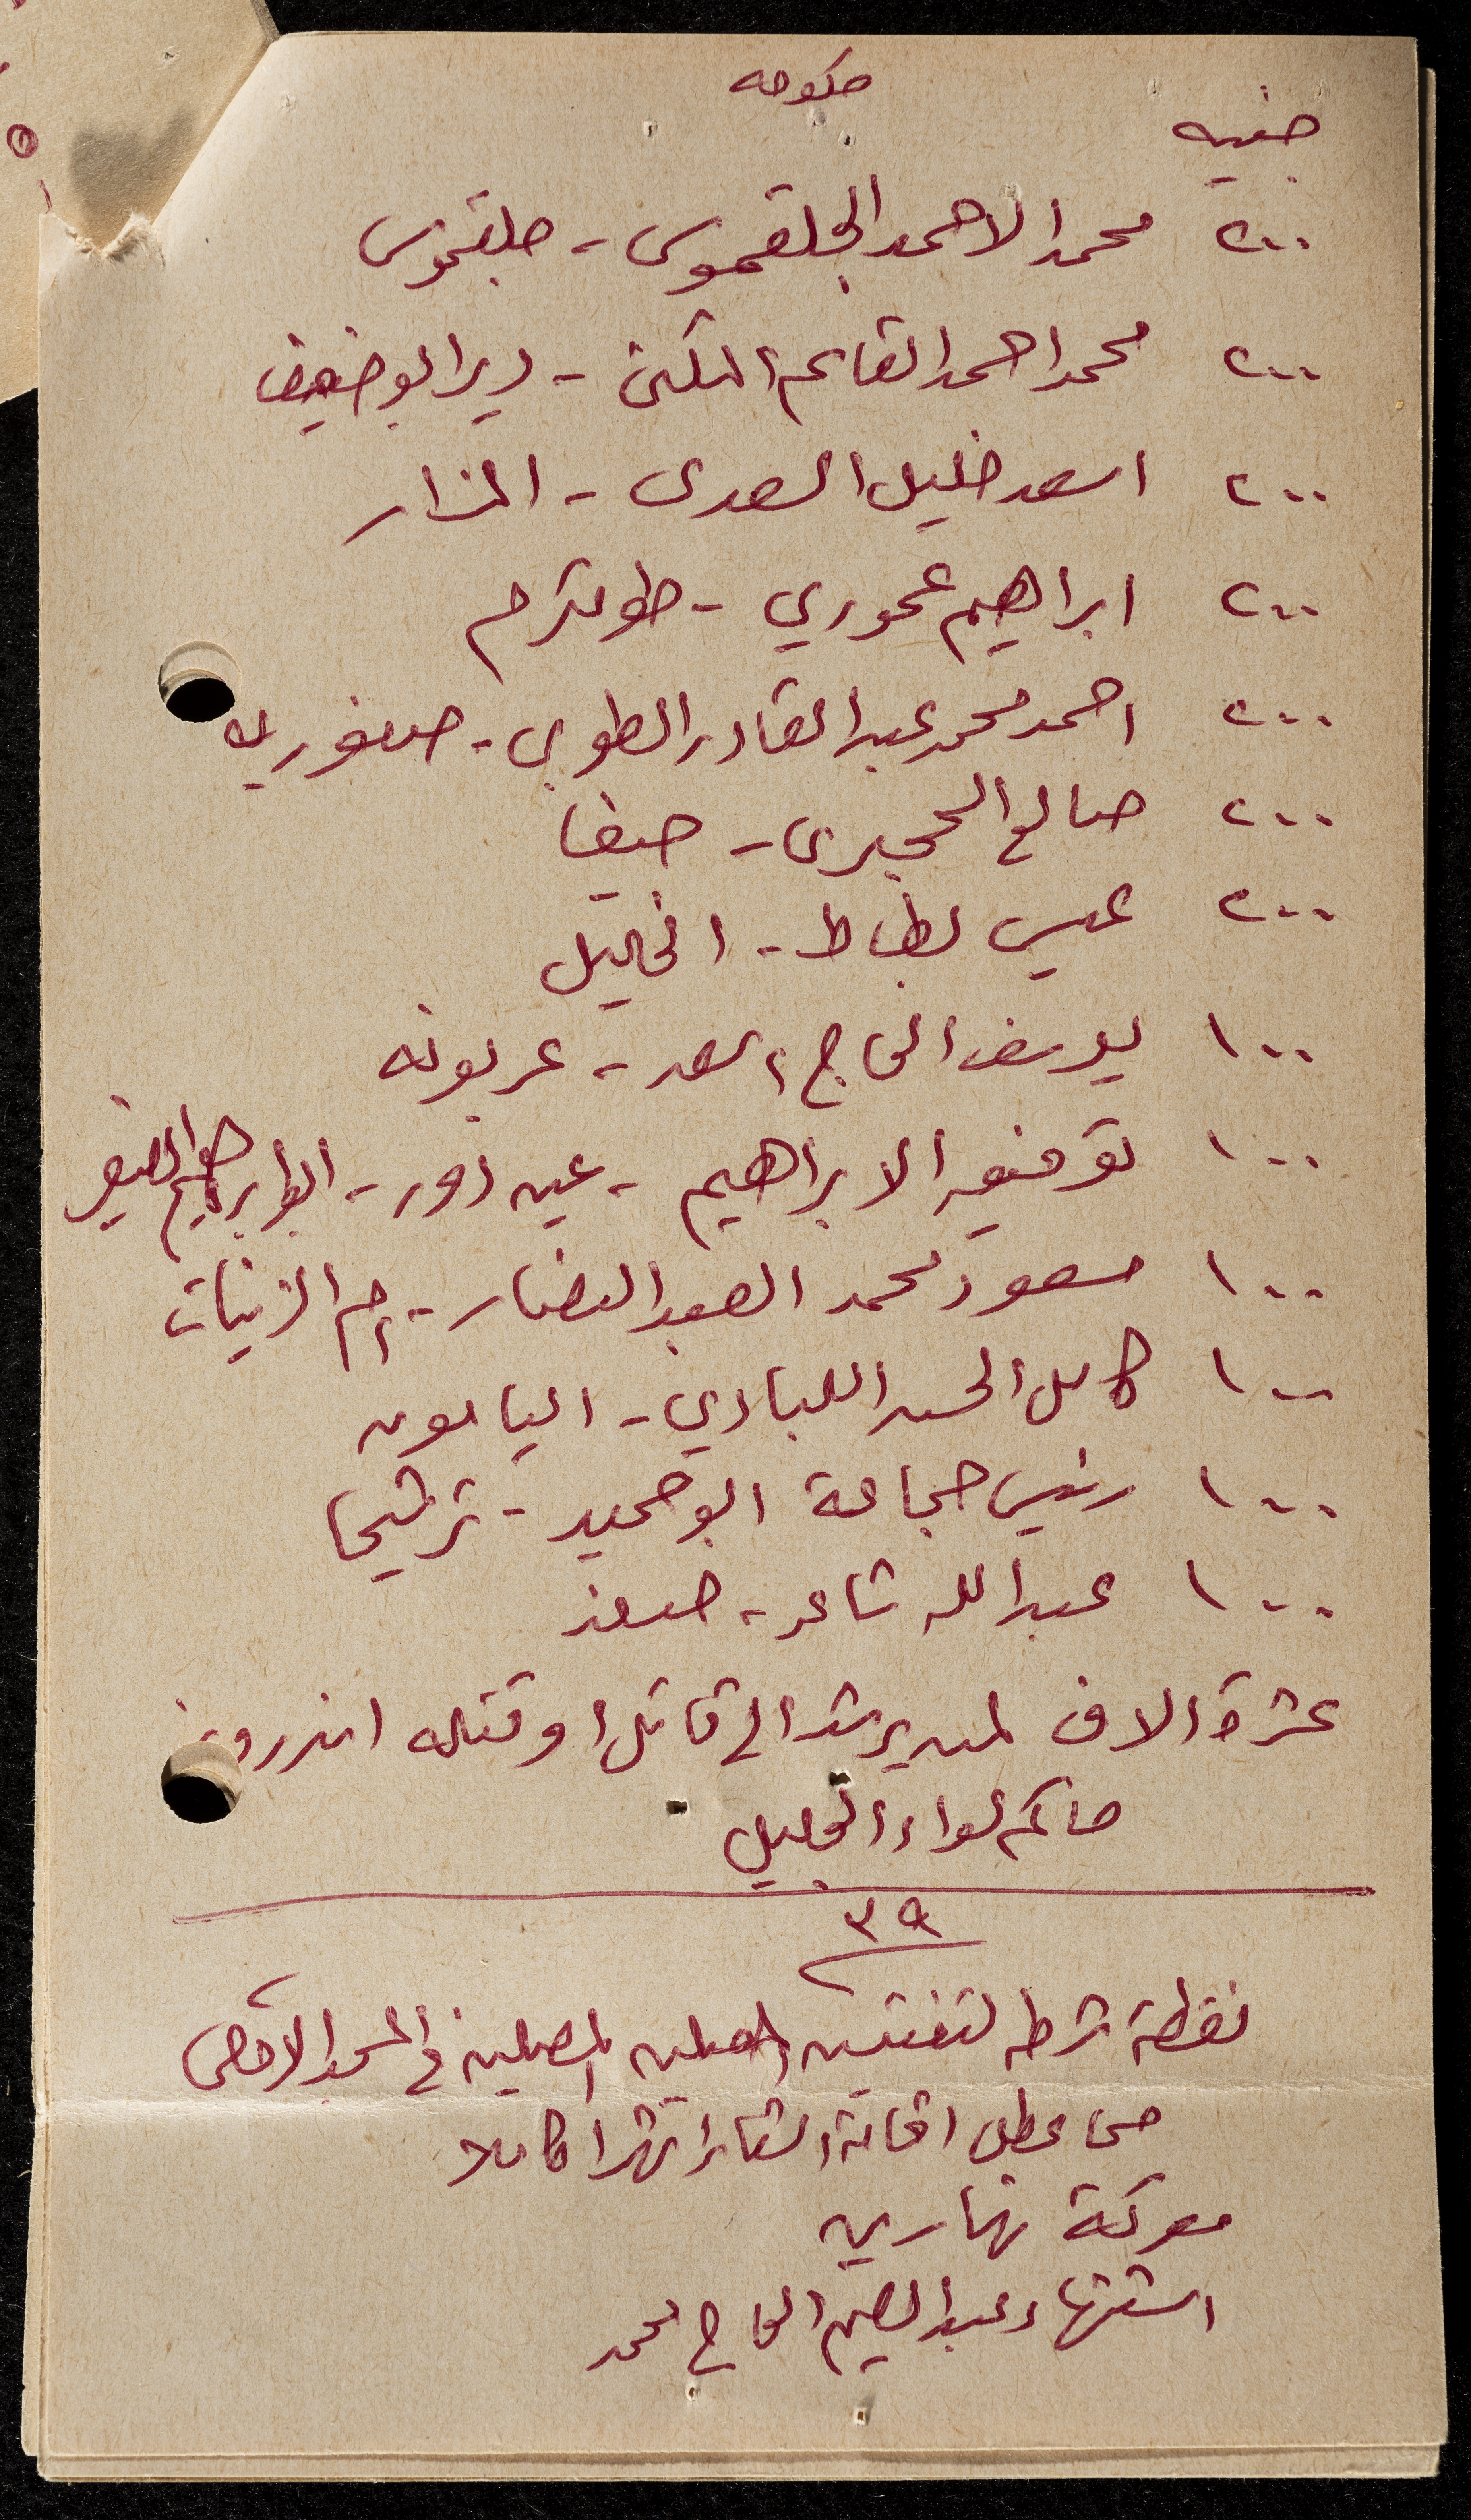 حكومه
جنيه
٢٠٠ محمد الاحمد الجلقموسى - جلقموس
٢٠٠ محمد احمد القاسم التكن - دير ابو ضعيف
٢٠٠ اسعد خليل السعدى - المزار
٢٠٠ ابراهيم عموري - طولكرم
٢٠٠ احمد محمد عبد القادر الطوبى - صفوريه
٢٠٠ صالح الحجيرى - حيفا
٢٠٠ عيسى بطاط - الخليل
١٠٠ يوسف الحاج اسعد - عربونه
١٠٠ توفيق الابراهيم - عين دور - ابو ابراهيم الصغير
١٠٠ مسعود محمد العبد النصار - ام الزينات
١٠٠ كامل الحسن اللبادي - اليامون
١٠٠ رئيس جماعة ابو حميد - ترشيحا
١٠٠ عبد الله شاعر - صفد
عشرة الاف لمن يرشد الى قاتل او قتله اندروز
حاكم لواء الجليل
٣٩
نقطة شرطه لتفتيش المصلين في المسجد الاقصى
مما عطل اقامة الشعائر شهرا كاملا
معركة نهاريه
استشهاد عبد الرحيم الحاج محمد